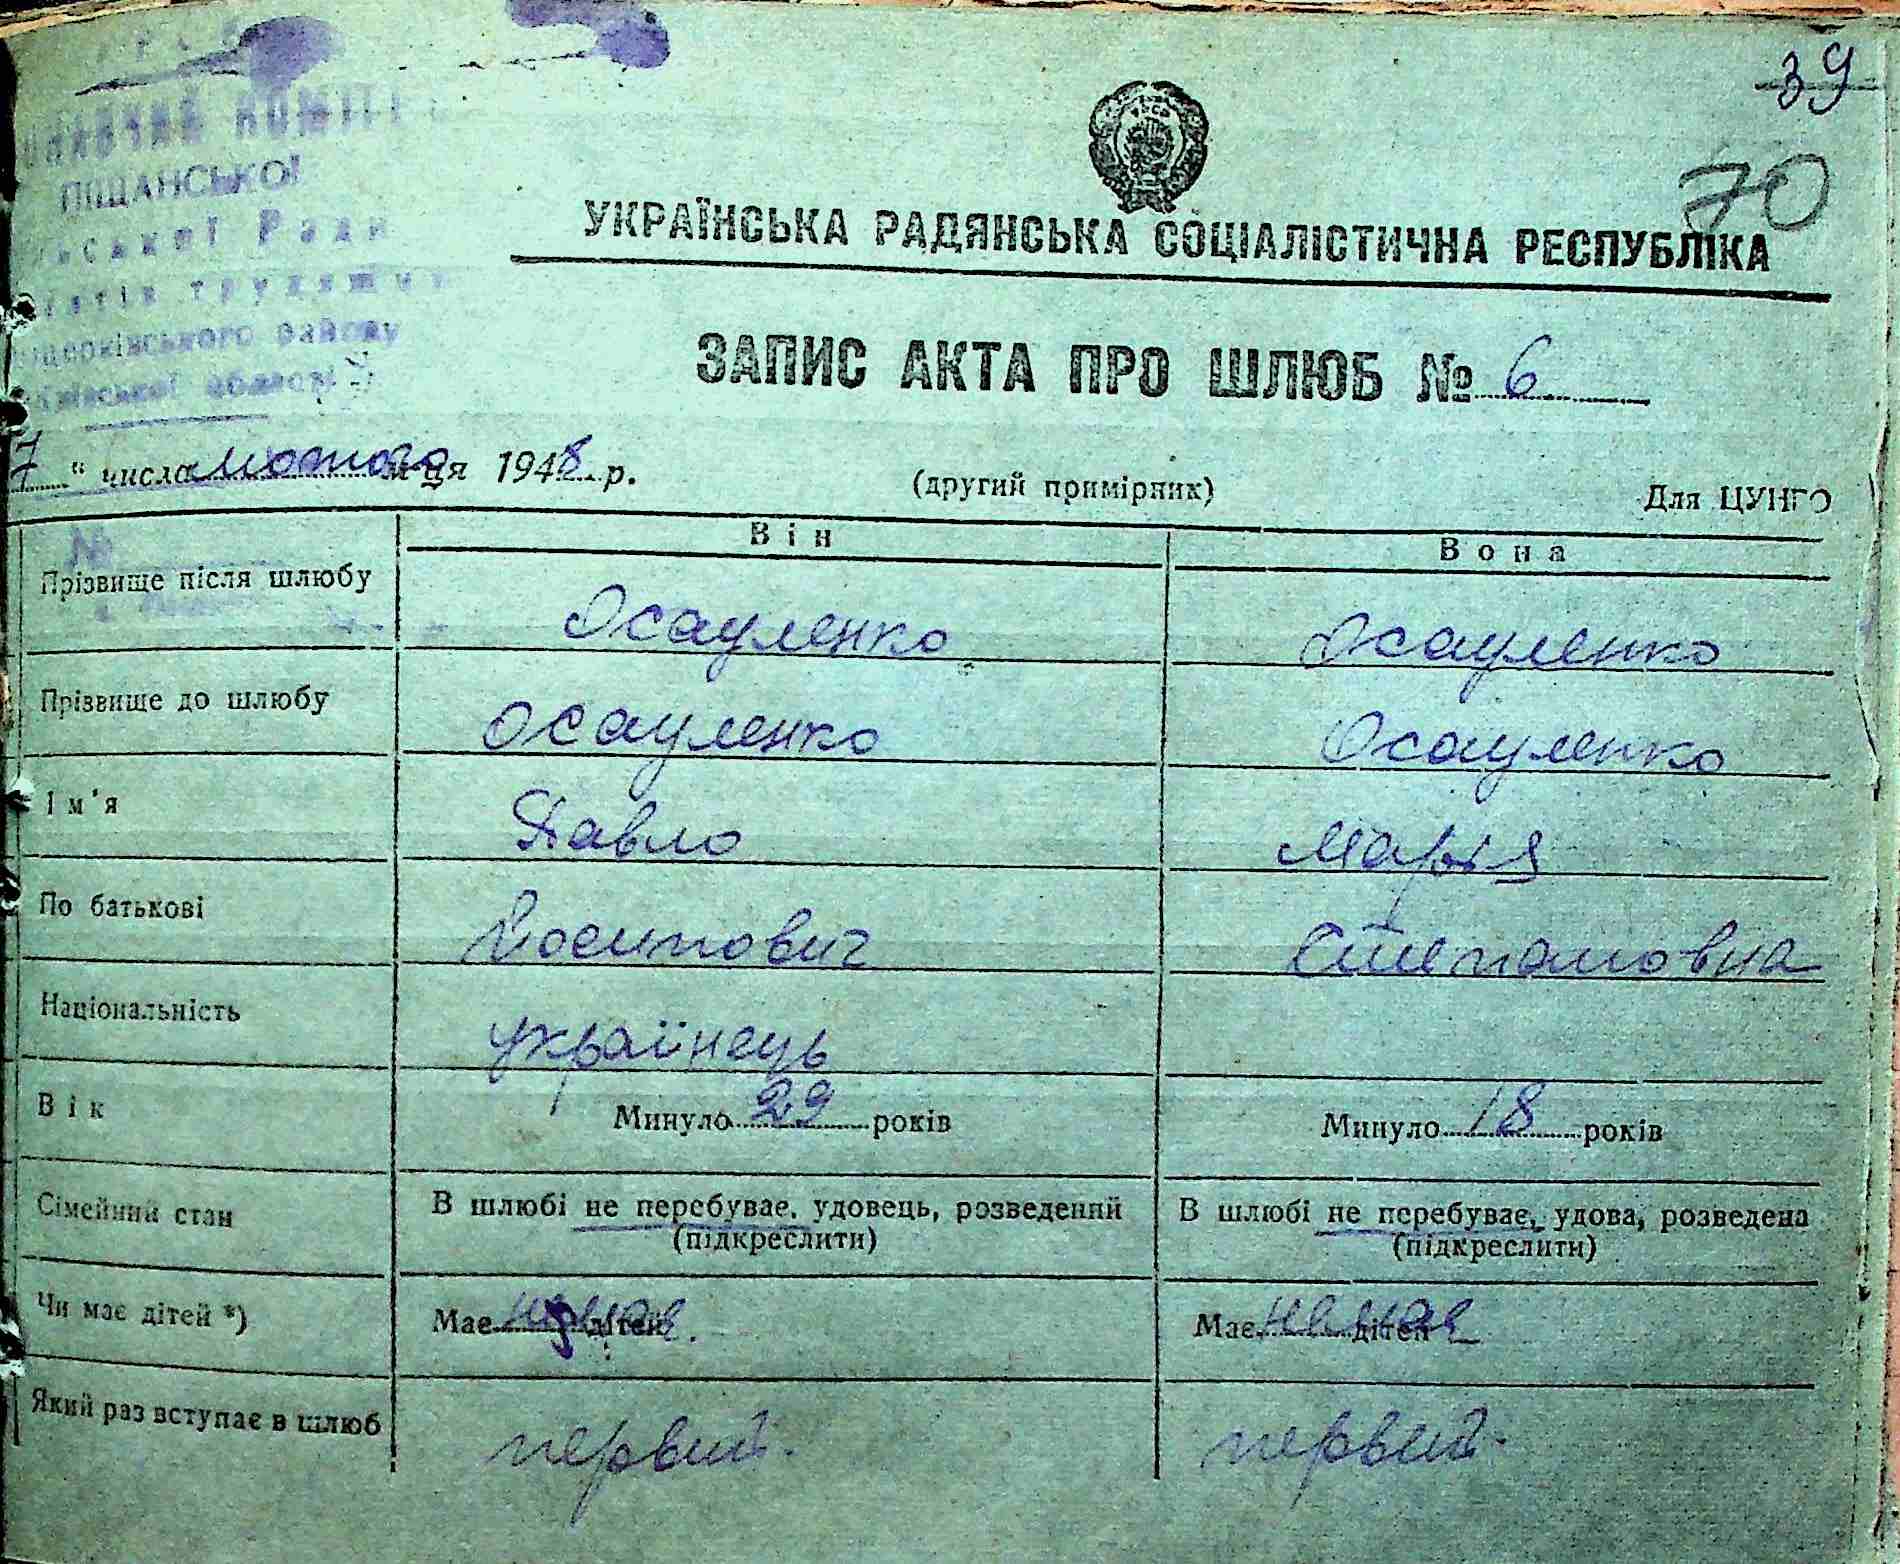 39
70
ПІЩАНСЬКОЇ
Ради
трудящих
району
області
УКРАЇНСЬКА РАДЯНСЬКА СОЦІАЛІСТИЧНА РЕСПУБЛІКА
ЗАПИС АКТА ПРО ШЛЮБ № 6
7 " числа лютого м-ця 1948 р.
(другий примірник)
Для ЦУНГО
№
Він
Вона
Прізвище після шлюбу Осауленко Осауленко
Прізвище до шлюбу Осауленко Осауленко
Ім'я Павло Марія
По батькові Йосипович Степановна
Національність українець
Вік Минуло 29 років Минуло 18 років
Сімейний стан В шлюбі не перебуває, удовець, розведений В шлюбі не перебуває, удова, розведена
(підкреслити) (підкреслити)
Чи має дітей *) Має немає дітей Має немає дітей
Який раз вступає в шлюб первий. первий.